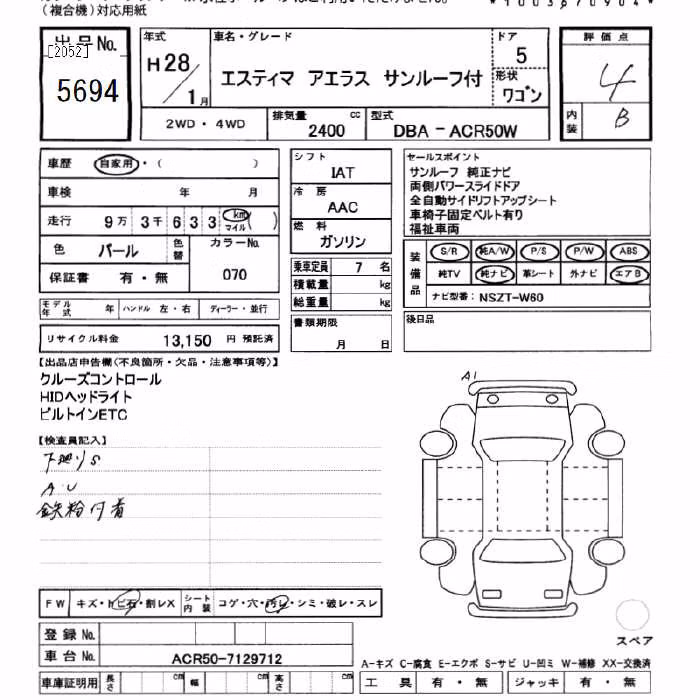 (複合機)対応用紙
*1003670904*
出品No.
[2052]
5694
年式
H28/1月
車名・グレード
エスティマ アエラス サンルーフ付
ドア
5
形状
ワゴン
評価点
4
内装
B
2WD・4WD
排気量
2400
cc
型式
DBA-ACR50W
車歴
自家用・( )
車検
年
月
走行
9万3千633
km
マイル
( )
色
パール
色替
カラーNo.
070
保証書
有・無
シフト
IAT
冷房
AAC
燃料
ガソリン
乗車定員
7
名
積載量
kg
総重量
kg
セールスポイント
サンルーフ 純正ナビ
両側パワースライドドア
全自動サイドリフトアップシート
車椅子固定ベルト有り
福祉車両
装備品
S/R
純A/W
P/S
P/W
ABS
純TV
純ナビ
革シート
外ナビ
エアB
ナビ型番: NSZT-W60
モデル年式
年
ハンドル 左・右
ディーラー・並行
リサイクル料金
13,150
円
預託済
書類期限
月
日
後日品
【出品店申告欄(不良箇所・欠品・注意事項等)】
クルーズコントロール
HIDヘッドライト
ビルトインETC
【検査員記入】
下廻りS
A.U
鉄粉付着
A1
FW
キズ・トビ石・割レX
シート内装
コゲ・穴・汚レ・シミ・破レ・スレ
登録No.
車台No.
ACR50-7129712
スペア
A-キズ C-腐食 E-エクボ S-サビ U-凹ミ W-補修 XX-交換済
車庫証明用
長さ
cm
幅
cm
高さ
cm
工具
有・無
ジャッキ
有・無